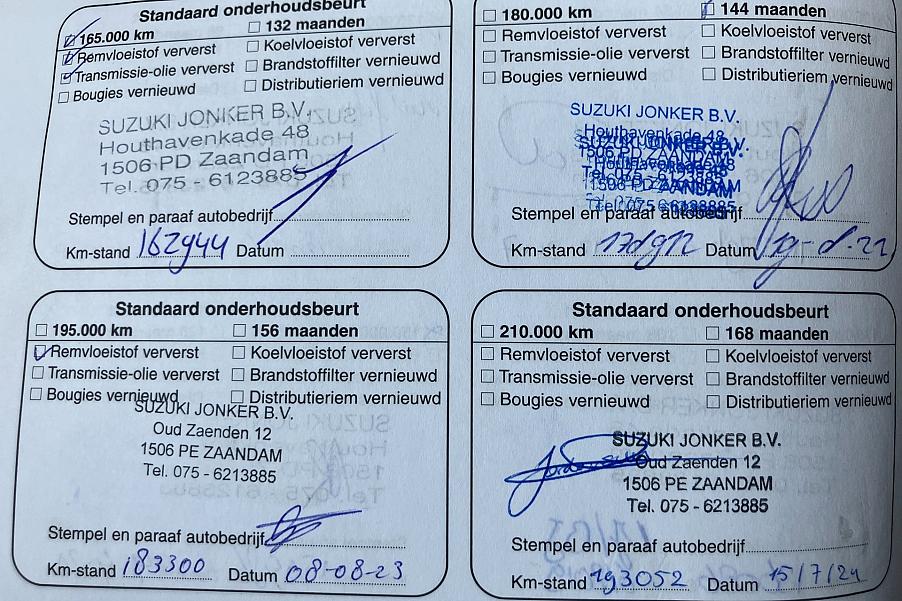 Standaard onderhoudsbeurt
165.000 km 132 maanden
Remvloeistof ververst Koelvloeistof ververst
Transmissie-olie ververst Brandstoffilter vernieuwd
Bougies vernieuwd Distributieriem vernieuwd
SUZUKI JONKER B.V.
Houthavenkade 48
1506 PD Zaandam
Tel. 075 - 6123885
Stempel en paraaf autobedrijf
Km-stand 162944 Datum
180.000 km 144 maanden
Remvloeistof ververst Koelvloeistof ververst
Transmissie-olie ververst Brandstoffilter vernieuwd
Bougies vernieuwd Distributieriem vernieuwd
SUZUKI JONKER B.V.
Houthavenkade 48
1506 PD ZAANDAM
Stempel en paraaf autobedrijf
Km-stand Datum
Standaard onderhoudsbeurt
195.000 km 156 maanden
Remvloeistof ververst Koelvloeistof ververst
Transmissie-olie ververst Brandstoffilter vernieuwd
Bougies vernieuwd Distributieriem vernieuwd
SUZUKI JONKER B.V.
Oud Zaenden 12
1506 PE ZAANDAM
Tel. 075 - 6213885
Stempel en paraaf autobedrijf
Km-stand 183300 Datum 08-08-23
Standaard onderhoudsbeurt
210.000 km 168 maanden
Remvloeistof ververst Koelvloeistof ververst
Transmissie-olie ververst Brandstoffilter vernieuwd
Bougies vernieuwd Distributieriem vernieuwd
SUZUKI JONKER B.V.
Oud Zaenden 12
1506 PE ZAANDAM
Tel. 075 - 6213885
Stempel en paraaf autobedrijf
Km-stand 193052 Datum 15/7/24